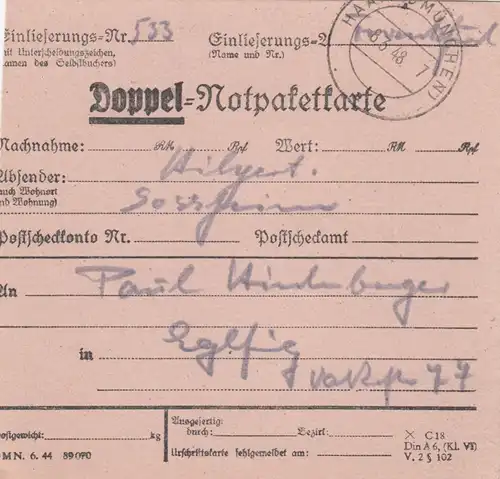 Einlieferungs-Nr. 533
mit Unterscheidungszeichen,
Namen des Selbstbuchers)
Einlieferungs-
(Name und Nr.)
HAAR (MÜNCHEN)
8.48
Doppel-Notpaketkarte
Nachnahme: RM Rpf Wert: RM Rpf
Absender: Hilpert.
auch Wohnort
und Wohnung)
Postscheckkonto Nr. Postscheckamt
An Paul Hindenberger
in Eglfing
77
Postgewicht: kg
Ausgefertig:
durch: Bezirk:
Urschriftskarte fehlgemeldet am:
MN. 6. 44 89070
X C 18
Din A 6, (Kl. VI)
V. 2 § 102